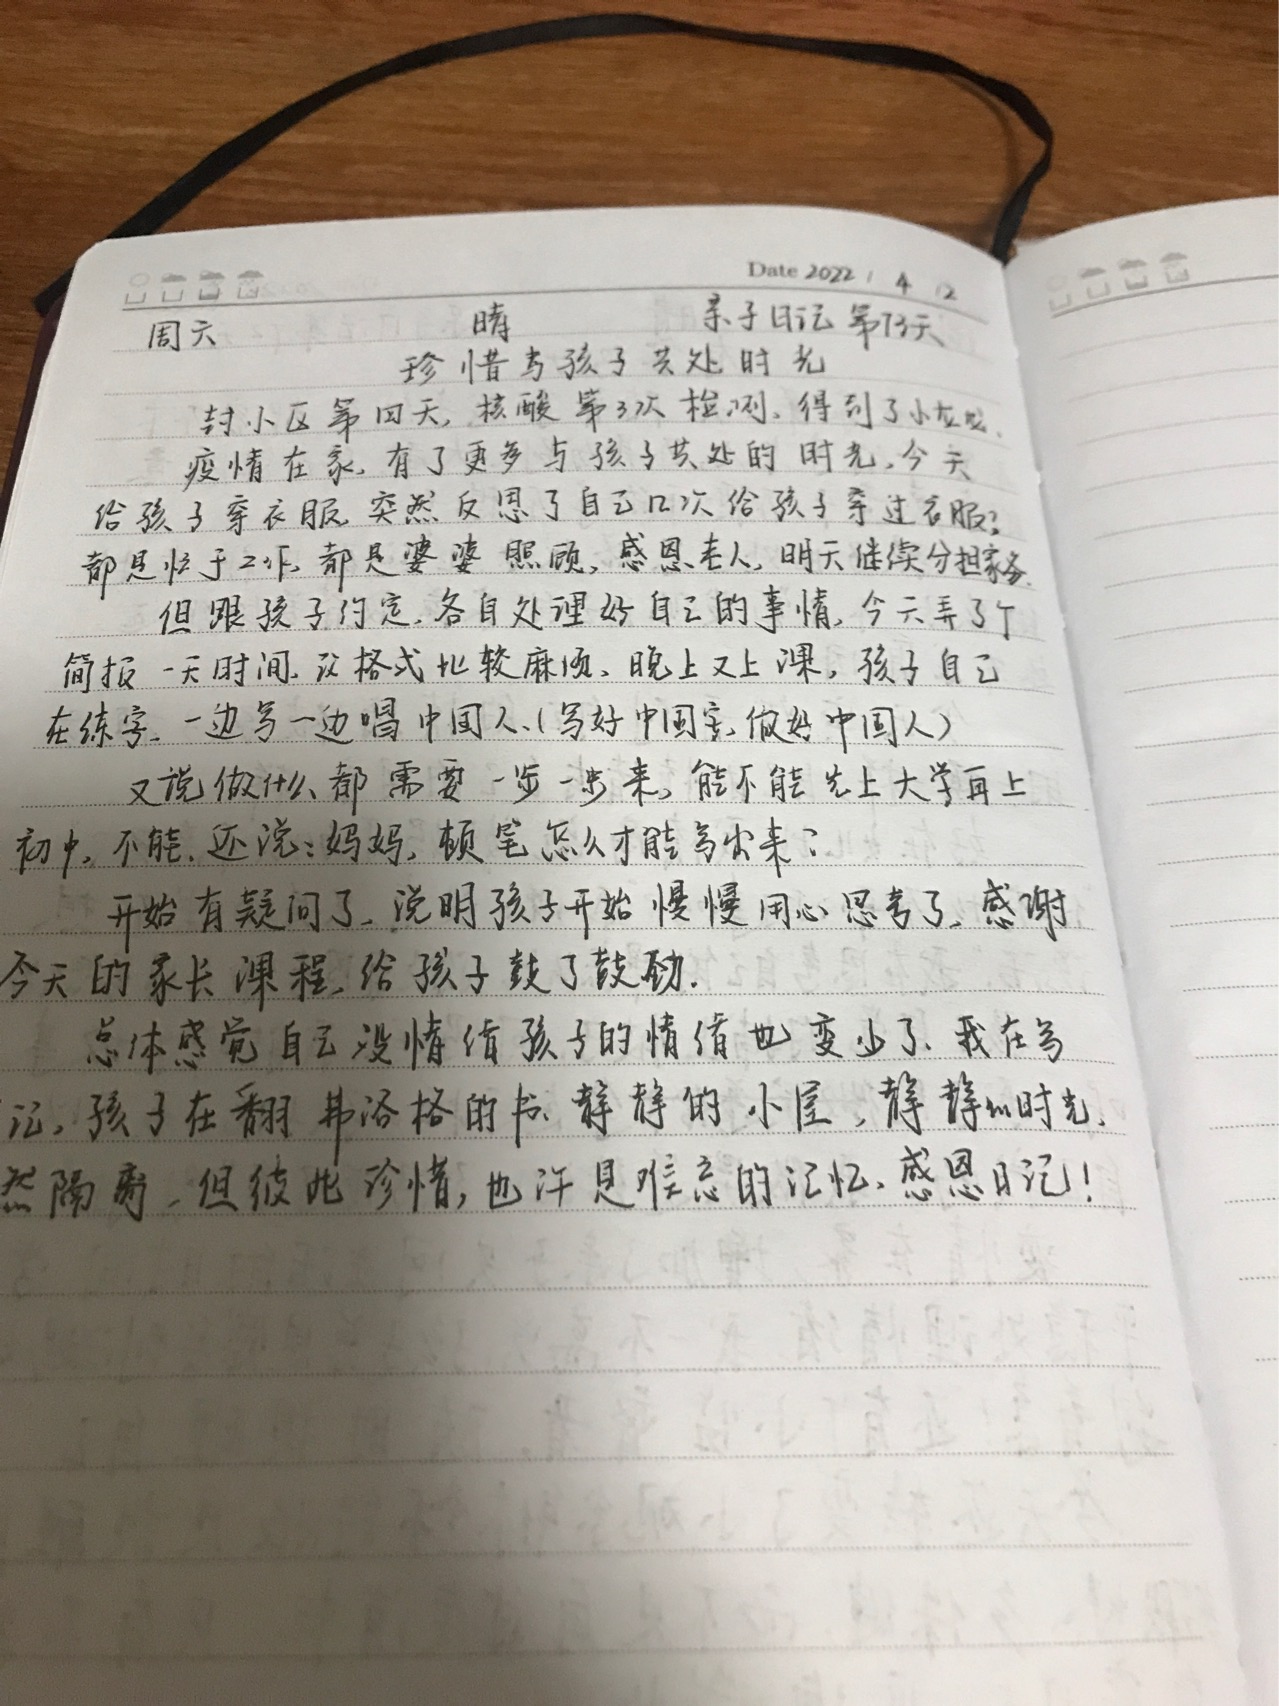 Date 2022 / 4 / 2
周六 晴 亲子日记第73天
珍惜与孩子共处时光
封小区第四天,核酸第3次检测,得到了小龙龙.
疫情在家,有了更多与孩子共处的时光,今天
给孩子穿衣服,突然反思了自己几次给孩子穿过衣服?
都是忙于工作,都是婆婆照顾,感恩老人,明天继续分担家务.
但跟孩子约定,各自处理好自己的事情,今天弄了个
简报一天时间,改格式比较麻烦、晚上又上课,孩子自己
在练字,一边写一边唱中国人、(写好中国字,做好中国人)
又说做什么都需要一步一步来,能不能先上大学再上
初中,不能.还说:妈妈,顿笔怎么才能写出来?
开始有疑问了,说明孩子开始慢慢用心思考了,感谢
今天的家长课程,给孩子鼓了鼓劲.
总体感觉自己没情绪孩子的情绪也变少了、我在写
记,孩子在翻弗洛格的书、静静的小屋,静静的时光,
然隔离,但彼此珍惜,也许是难忘的记忆、感恩日记!